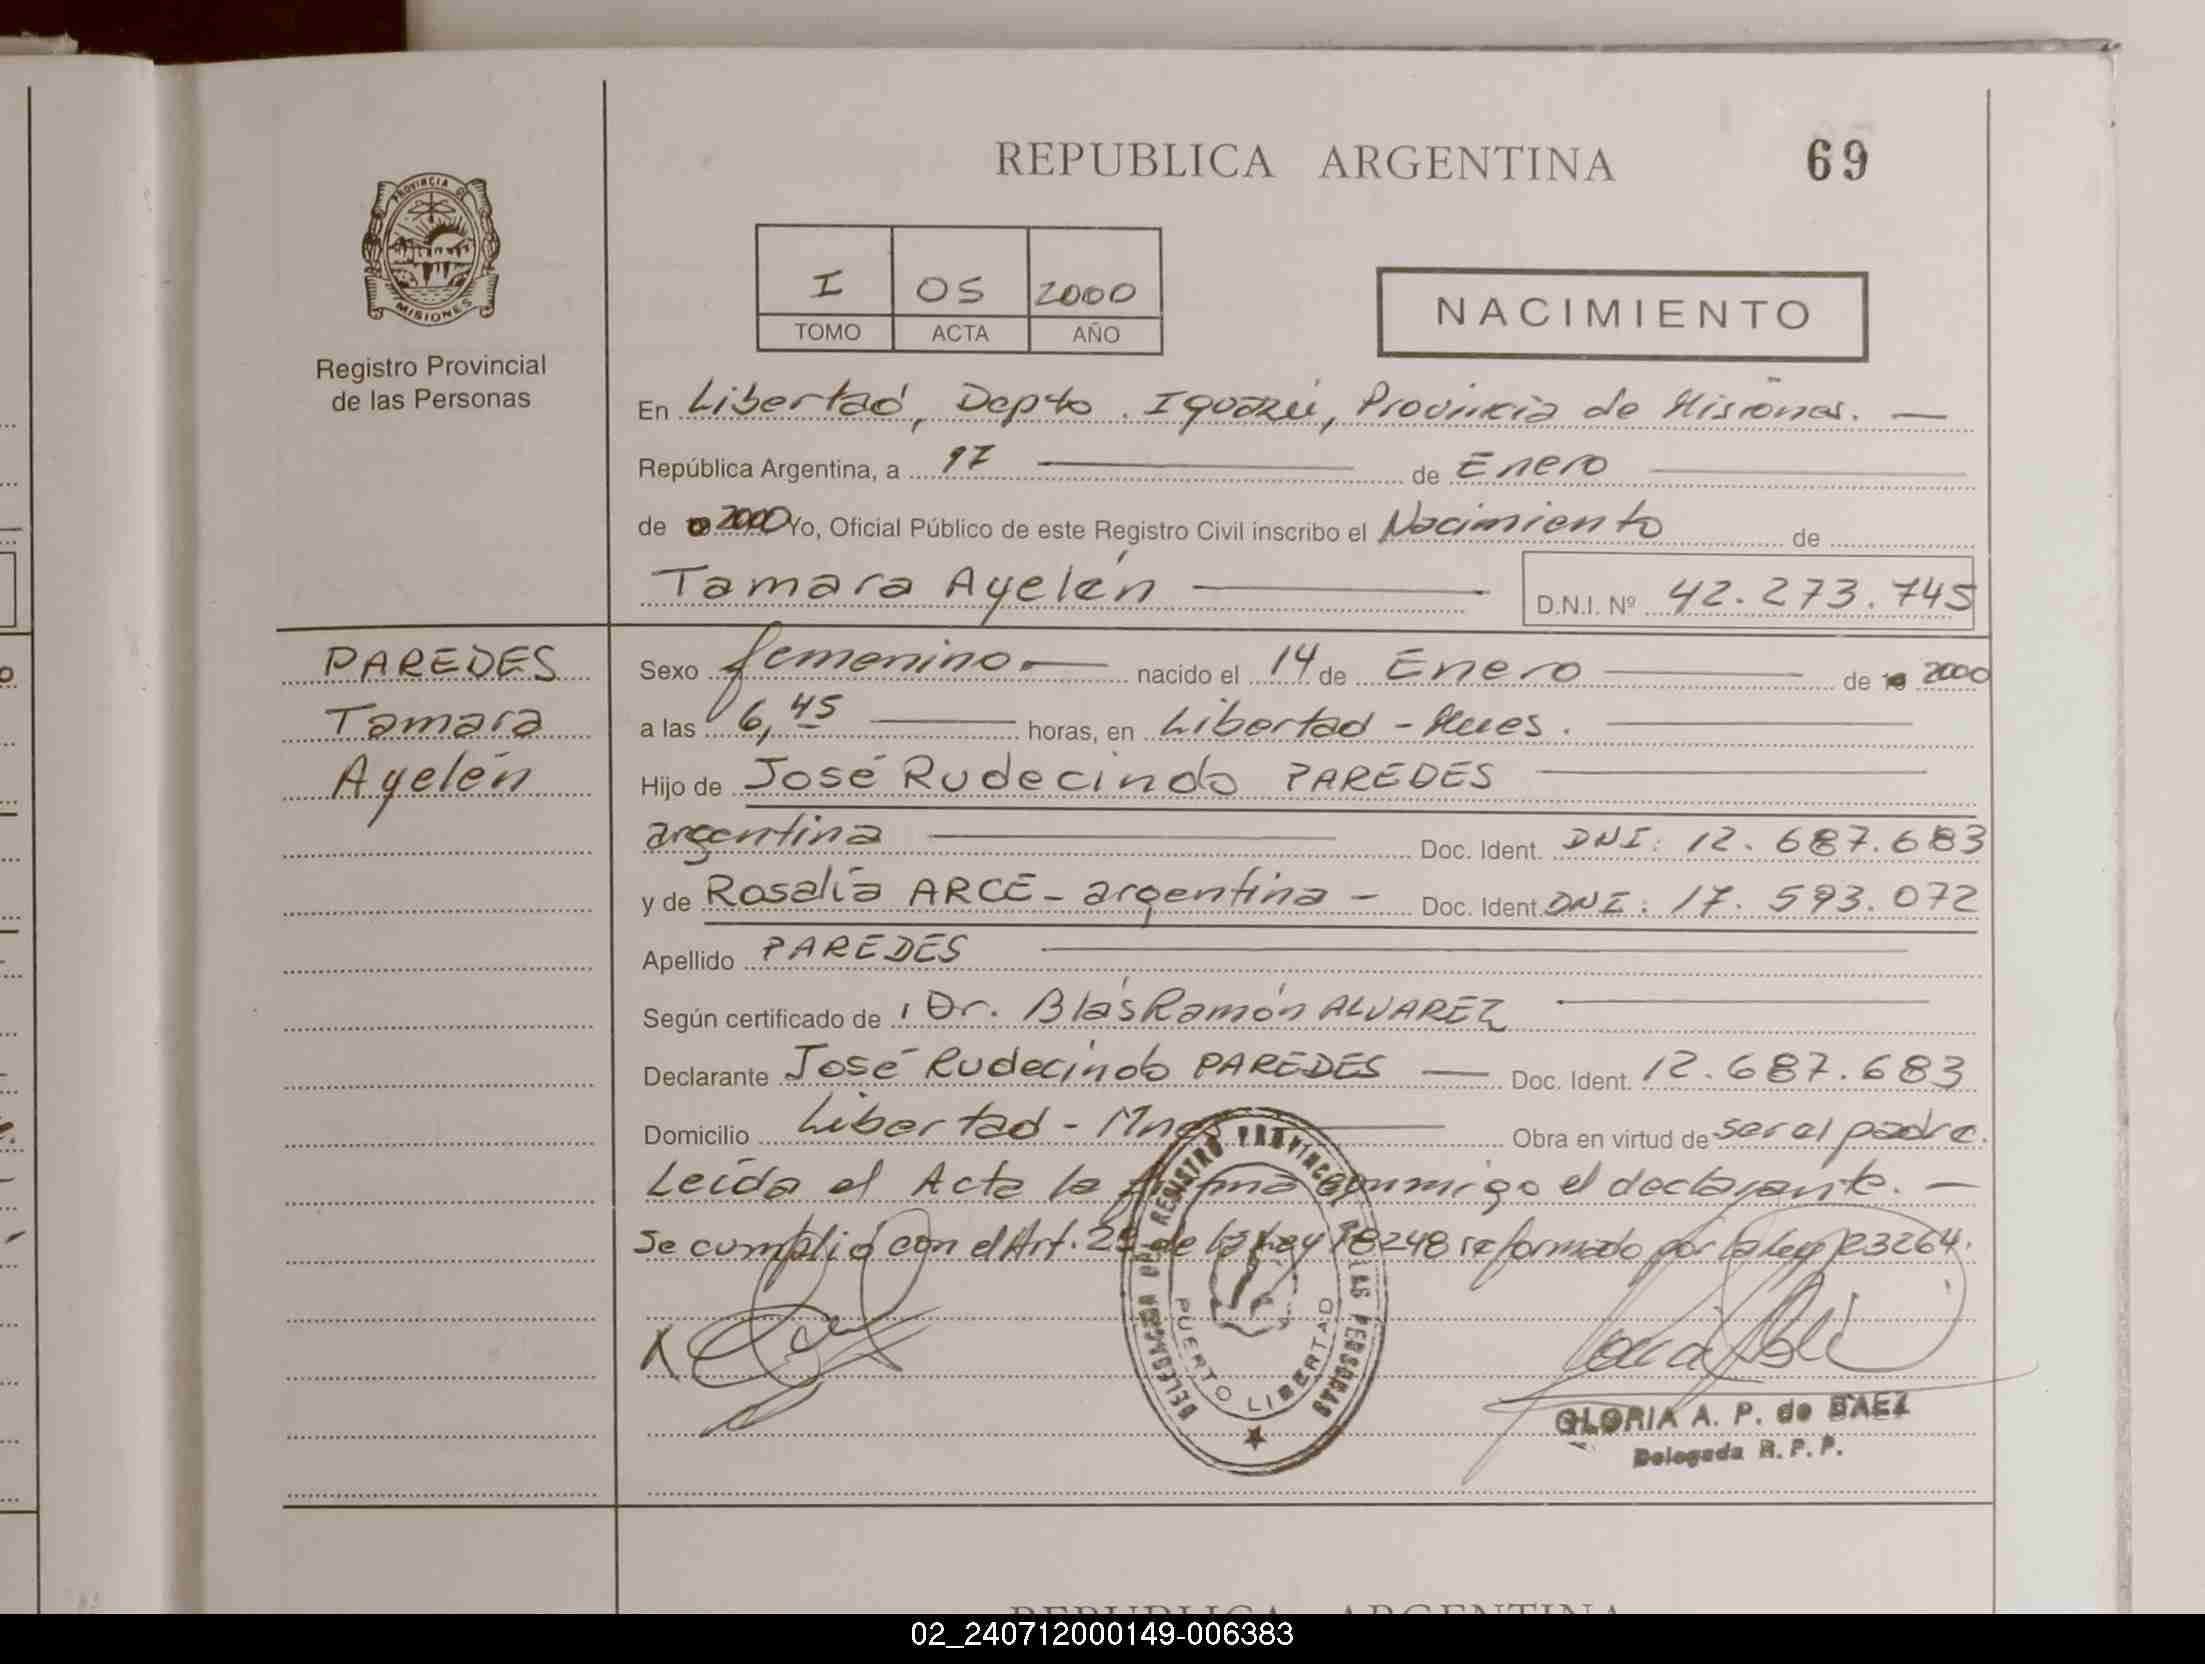 REPUBLICA ARGENTINA
69
PROVINCIA DE
MISIONES
Registro Provincial
de las Personas
I 05 2000
TOMO ACTA AÑO
NACIMIENTO
En Libertad, Depto. Iguazú, Provincia de Misiones. —
República Argentina, a 17 — de Enero —
de 2000 Yo, Oficial Público de este Registro Civil inscribo el Nacimiento de
Tamara Ayelén — D.N.I. Nº 42.273.745
PAREDES
Tamara
Ayelén
Sexo femenino — nacido el 14 de Enero — de 19 2000
a las 6,45 — horas, en Libertad - Mnes. —
Hijo de José Rudecindo PAREDES —
argentina — Doc. Ident. DNI: 12.687.683
y de Rosalía ARCE - argentina - Doc. Ident. DNI: 17.593.072
Apellido PAREDES —
Según certificado de Dr. Blás Ramón ALVAREZ —
Declarante José Rudecindo PAREDES — Doc. Ident. 12.687.683
Domicilio Libertad - Mnes — Obra en virtud de ser el padre.
Leída el Acta la firma conmigo el declarante. —
Se cumplió con el Art. 25 de la Ley 18248 reformado por la Ley 23264.
DELEGACION DEL REGISTRO PROVINCIAL DE LAS PERSONAS
PUERTO LIBERTAD
X
GLORIA A. P. de BAEZ
Delegada R. P. P.
REPUBLICA ARGENTINA
02_240712000149-006383